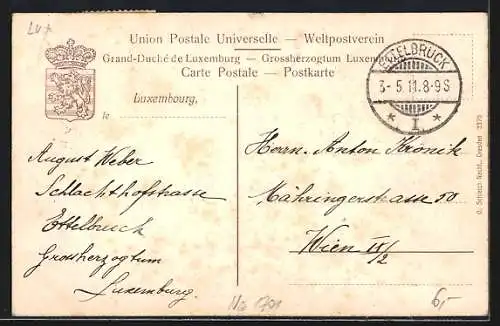 Lux
Union Postale Universelle — Weltpostverein
Grand-Duché de Luxemburg — Grossherzogtum Luxem
Carte Postale — Postkarte
ETTELBRUCK
3-5.11.8-9S
* I *
Luxembourg,
le
August Weber
Schlachthofstrasse
Ettelbruck
Grossherzogtum
Luxemburg
Herrn Anton Kronik
Währingerstrasse 50
Wien IX/2
G. Schleich Nachf., Dresden 2370
No 1791
6,-